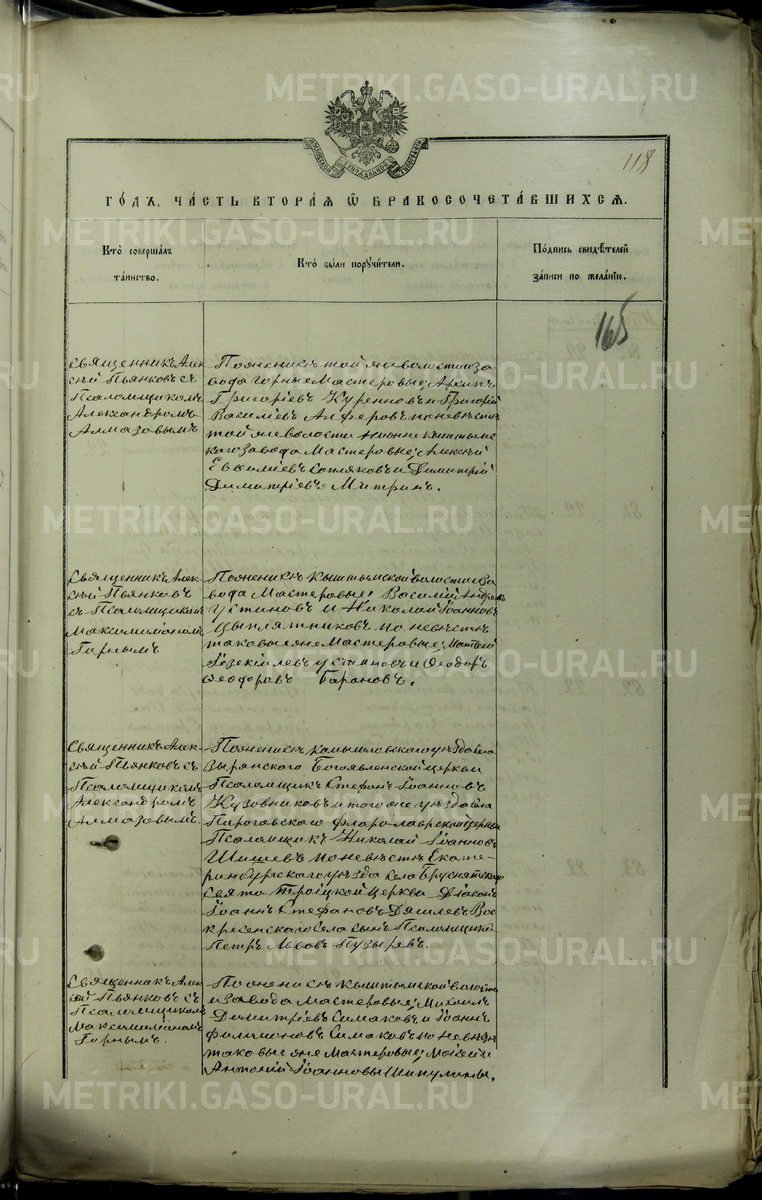 METRIKI.GASO-URAL.RU
118
ГО́ДЪ, ЧА́СТЬ ВТОРА́Я Ѿ БРАКОСОЧЕТА́ВШИХСЯ.
Кто̀ соверша́лъ
та́инство.
Кто̀ бы́ли порꙋчи́тели.
По́дпись свидѣ́телей
за́писи по жела́нїю.
165
Священникъ Алек
сѣй Пьянковъ съ
Псаломщикомъ
Александромъ
Алмазовымъ
По женихѣ той же волости и за
вода горные Мастеровые; Архипъ
Григорьевъ Куренновъ и Григорій
Василіевъ Алферовъ по невѣстѣ
той же волости Нижне Кыштымс
каго завода Мастеровые; Алексѣй
и Димитрій
Димитріевъ Митринъ.
Священникъ Алек
сѣй Пьянковъ
съ Псаломщикомъ
Максимиліаномъ
Горнымъ
По женихѣ Кыштымской волости и за
вода Мастеровые; Василій Андреевъ
Устиновъ и Николай Іоанновъ
Цыплятниковъ по невѣстѣ
таковые же Мастеровые; Матвей
Іезекіилевъ Устиновъ и Ѳеодоръ
Ѳеодоровъ Барановъ.
Священникъ Алек
сѣй Пьянковъ съ
Псаломщикомъ
Александромъ
Алмазовымъ.
По женихѣ Камышловскаго уѣзда села
Зырянскаго Богоявленской церкви
Псаломщикъ Стефанъ Іоанновъ
Кузовниковъ и того же уѣзда села
Пироговскаго Флоролаврской церкви
Псаломщикъ Николай Іоанновъ
Шишевъ по невѣстѣ Екате-
ринбургскаго уѣзда села Бруснятскаго
Свято Троицкой церкви Діаконъ
Іоаннъ Стефановъ Дягилевъ Вос
кресенскаго села сынъ Псаломщика
Петръ Львовъ Пузыревъ.
Священникъ Алек
сѣй Пьянковъ съ
Псаломщикомъ
Максимиліаномъ
Горнымъ.
По женихѣ Кыштымской волости
и завода мастеровые; Михаилъ
Димитріевъ Симаковъ и Іоаннъ
Филимоновъ Симаковъ по невѣстѣ
таковые же Мастеровые; Моисей и
Антоній Іоанновы Шипулины.